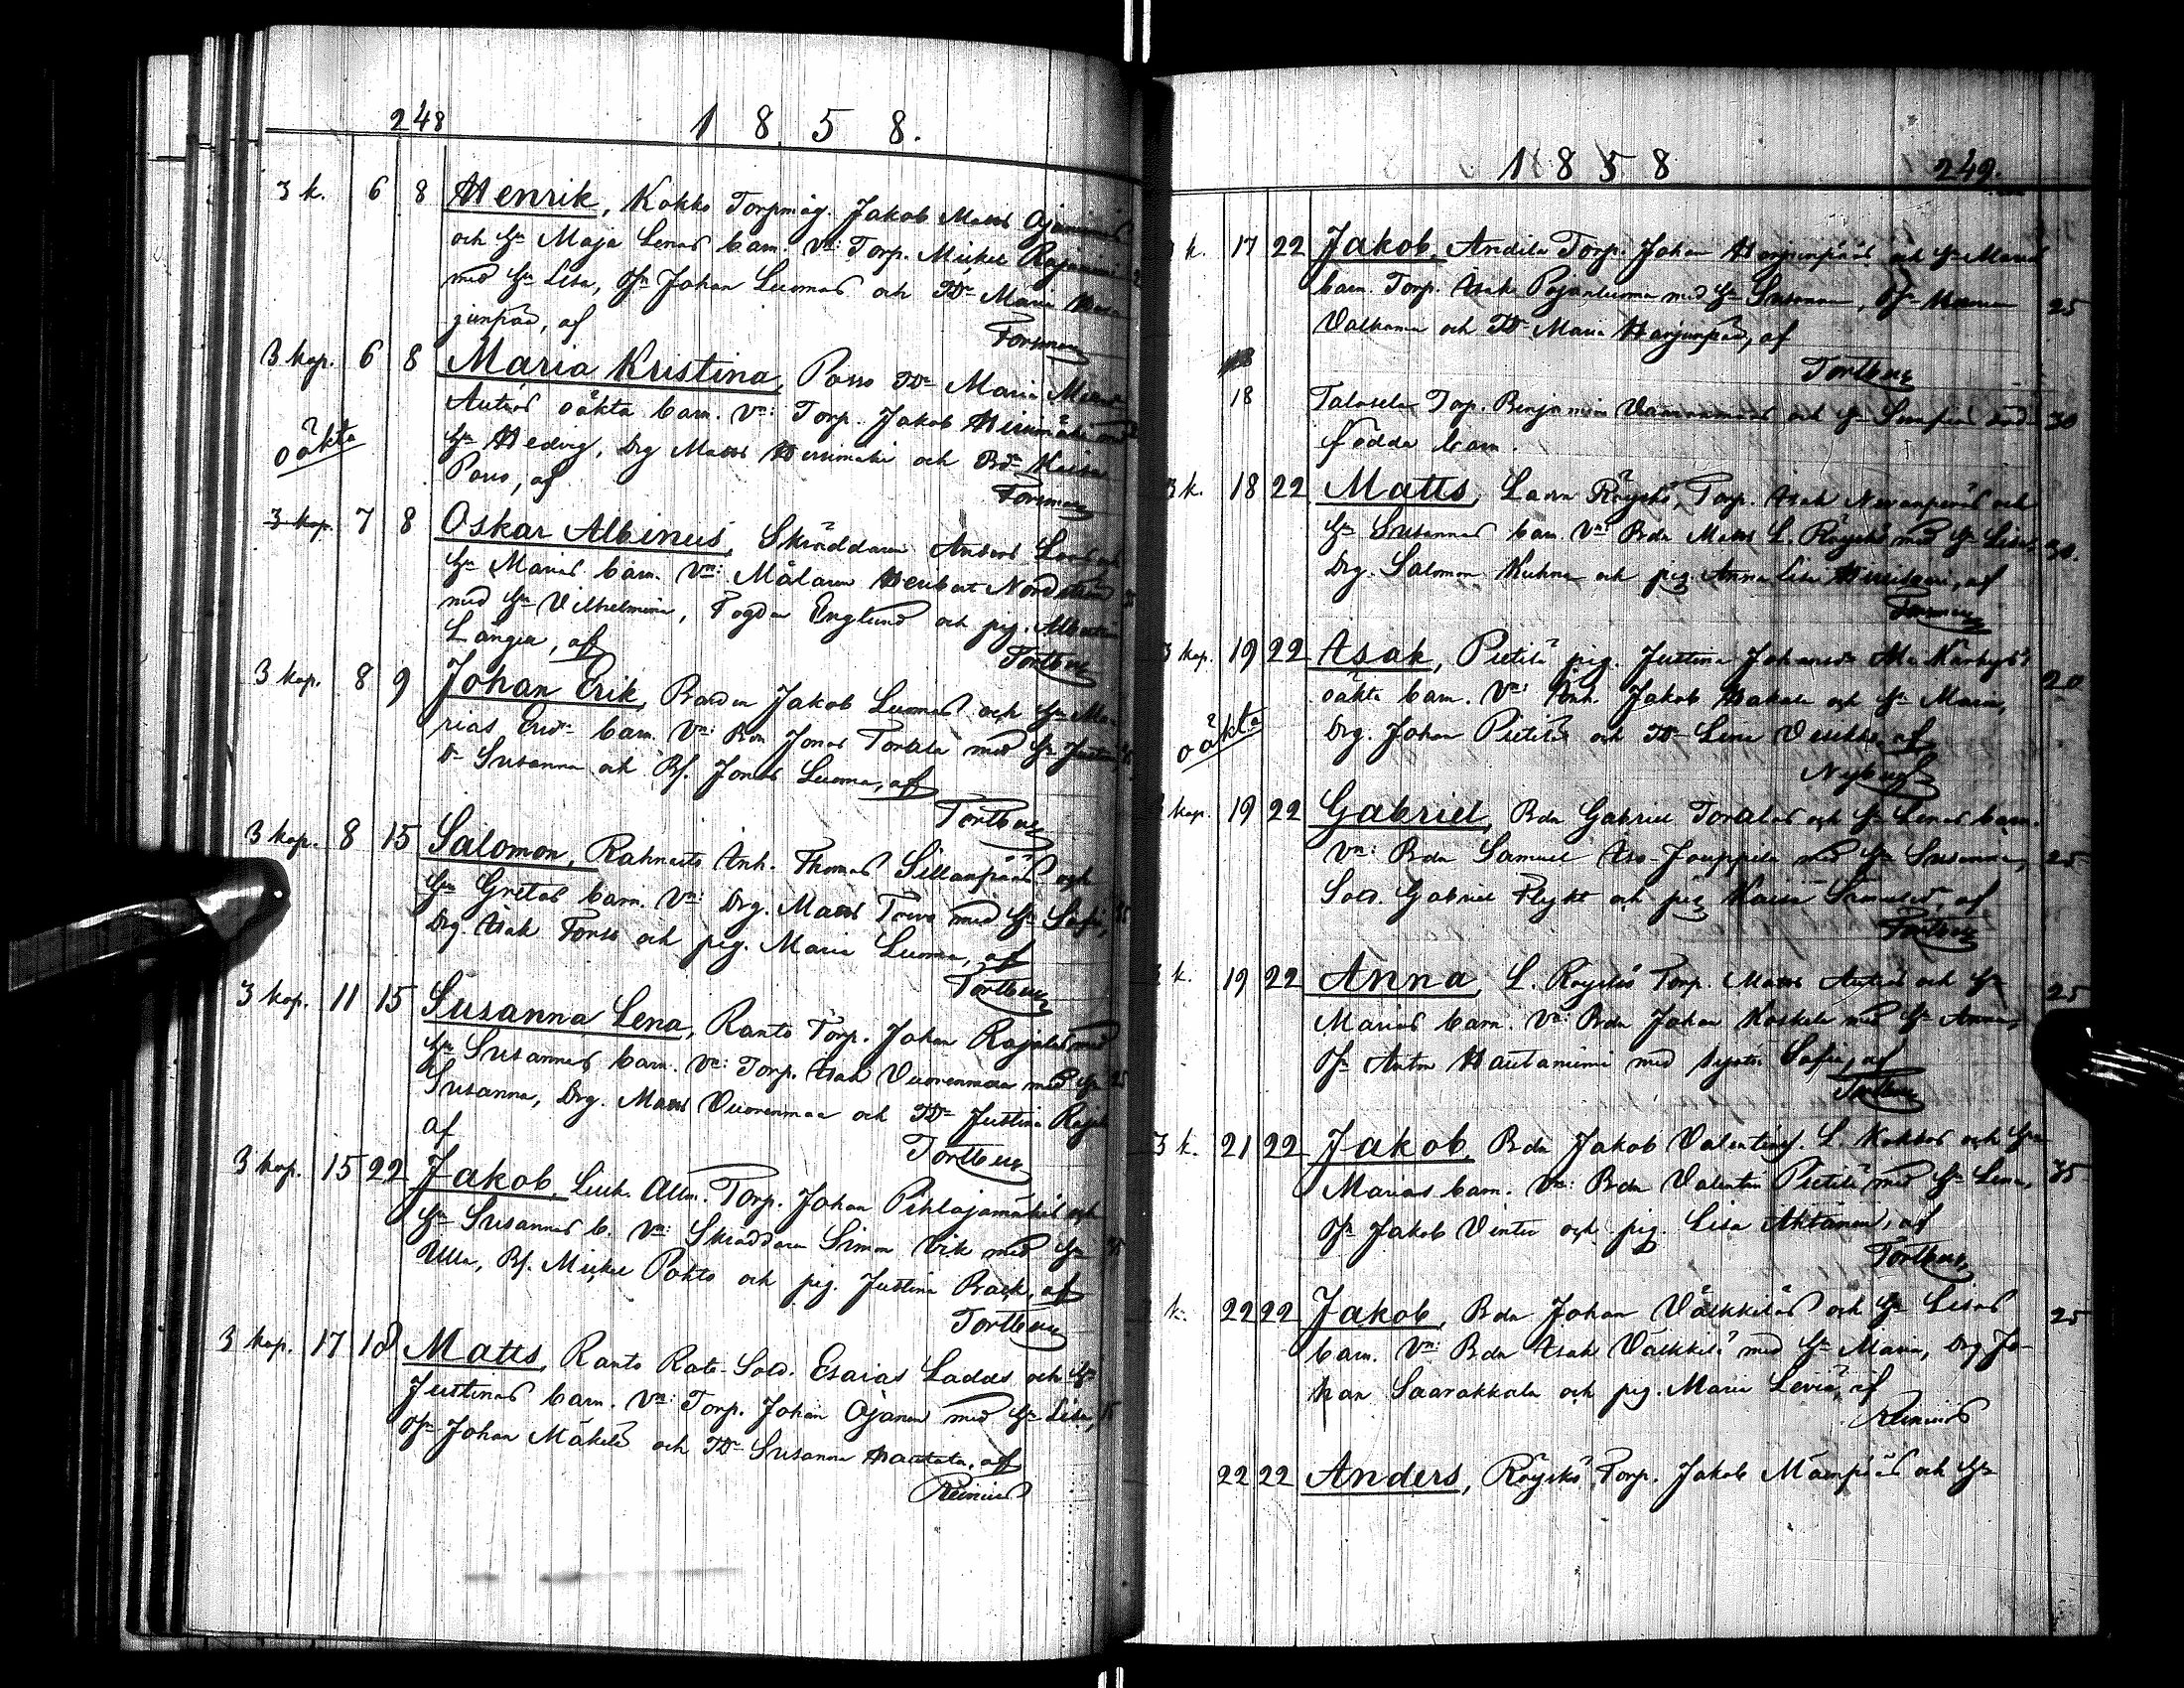 248
1 8 5 8.
3 k. 6 8 Henrik, Kokko Torpmåg. Jakob Matts Ojaniemis
och H&n Maja Lenas barn. Vn: Torp. Mickel Rajaniemi
med Hn Lisa, Ofn Johan Luomas och TDr Maria Har-
junpää, af
Forsman
3 kop. 6 8 Maria Kristina, Porro TDr Maria
Anttas oäkta barn. Vn: Torp. Jakob Hirsimäki med
oäkta
Hn Hedvig, Drg Matts Hirsimäki och BDr Kaisa
Porro, af
Forsman
3 kop. 7 8 Oskar Albinus, Skräddaren Anders
Hn Marias barn. Vn: Målaren Heribert Nordström
med Hn Vilhelmina, Fogden Englund och pig. Albertina
Långer, af
Tortberg
3 kop. 8 9 Johan Erik, Bonden Jakob Luomas och Hn Ma-
rias Ersdr barn. Vn: Bon Jonas Tortala med Hn Justina
Dr Susanna och Bs. Jonas Luoma, af
Tortberg
3 kop. 8 15 Salomon, Rahnasto Inh. Thomas Sillanpääs och
Hn Gretas barn. Vn: Drg. Matts Toivo med Hn Sofia, 35
Drg. Isak Forss och pig. Maria Luoma, af
Tortberg
3 kop. 11 15 Susanna Lena, Ranto Torp. Johan Rajalas med
Hn Susannas barn. Vn: Torp. Isak Vuorenmaa med Hn 25
Susanna, Drg. Matts Vuorenmaa och TDr Justina Rajala
af
Tortberg
3 kop. 15 22 Jakob, Luth. Torp. Johan Pihlajamäkis och
Hn Susannas b. Vn: Skräddaren Simon Vik med Hn 35
Ulla, Bs. Mickel Pohto och pig. Justina Back, af
Tortberg
3 kop. 17 18 Matts, Ranto Rote-Sold. Esaias Ladds och Hn
Justinas barn. Vn: Torp. Johan Ojanen med Hn Lisa,
Ofn Johan Mäkelä och TDr Susanna Haatala, af
Reinius
1 8 5 8
249.
k. 17 22 Jakob, Andila Torp. Johan Harjunpääs och Hn Marias
barn. Torp. Isak Pojanluoma med Hn Susanna, Ofn 25
Valkama och TDr Maria Harjunpää, af
Tortberg
18 Talosela Torp. Benjamin och Hn Serafias död- 30
födda barn.
3 k. 18 22 Matts, Laura Röyskö, Torp. Isak Nevanperäs och
Hn Susannas barn Vn Bdn Matts L. Röyskö med Hn Lisa, 30.
Drg. Salomon Kuhna och pig. Anna Lisa af
Forsman
3 kop. 19 22 Isak, Pietilä pig. Justina Johansdr
oäkta barn. Vn: Inh. Jakob Hakala och Hn Maria, 20
oäkta
Drg. Johan Pietilä och TDr Lena af
Nyberg
kop. 19 22 Gabriel, Bdn Gabriel Tortalas och Hn Lenas barn.
Vn: Bdn Samuel Iso-Jouppila med Hn Susanna, 25
Sold. Gabriel Flykt och pig Kaisa af
Tortberg
k. 19 22 Anna, L. Röyskös Torp. Matts Anttas och Hn 25
Marias barn. Vn: Bdn Johan Koskela med Hn Anna,
Ofn Anton Hautaniemi med syster Sofia, af
Tortberg
3 k. 21 22 Jakob, Bdn Jakob Valentinsf. L. Kokkos och Hn
Marias barn. Vn: Bdn Valentin Pietilä med Hn Lena, 35
Ofn Jakob Vinter och pig. Lisa Ahtanen, af
Tortberg
k. 22 22 Jakob, Bdn Johan Välkkiläs och Hn Lisas 25
barn. Vn: Bdn Isak Välkkilä med Hn Maria, Drg. Jo-
han Saarakkala och pig. Maria Leviä, af
Reinius
22 22 Anders, Röyskö Torp. Jakob Mäenpääs och Hn